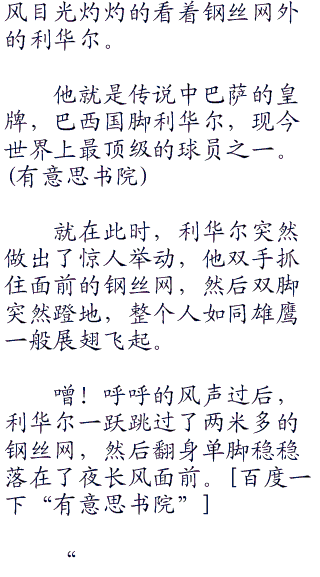 风目光灼灼的看着钢丝网外
的利华尔。
他就是传说中巴萨的皇
牌，巴西国脚利华尔，现今
世界上最顶级的球员之一。
(有意思书院)
就在此时，利华尔突然
做出了惊人举动，他双手抓
住面前的钢丝网，然后双脚
突然蹬地，整个人如同雄鹰
一般展翅飞起。
噌！呼呼的风声过后，
利华尔一跃跳过了两米多的
钢丝网，然后翻身单脚稳稳
落在了夜长风面前。[百度一
下“有意思书院”]
“